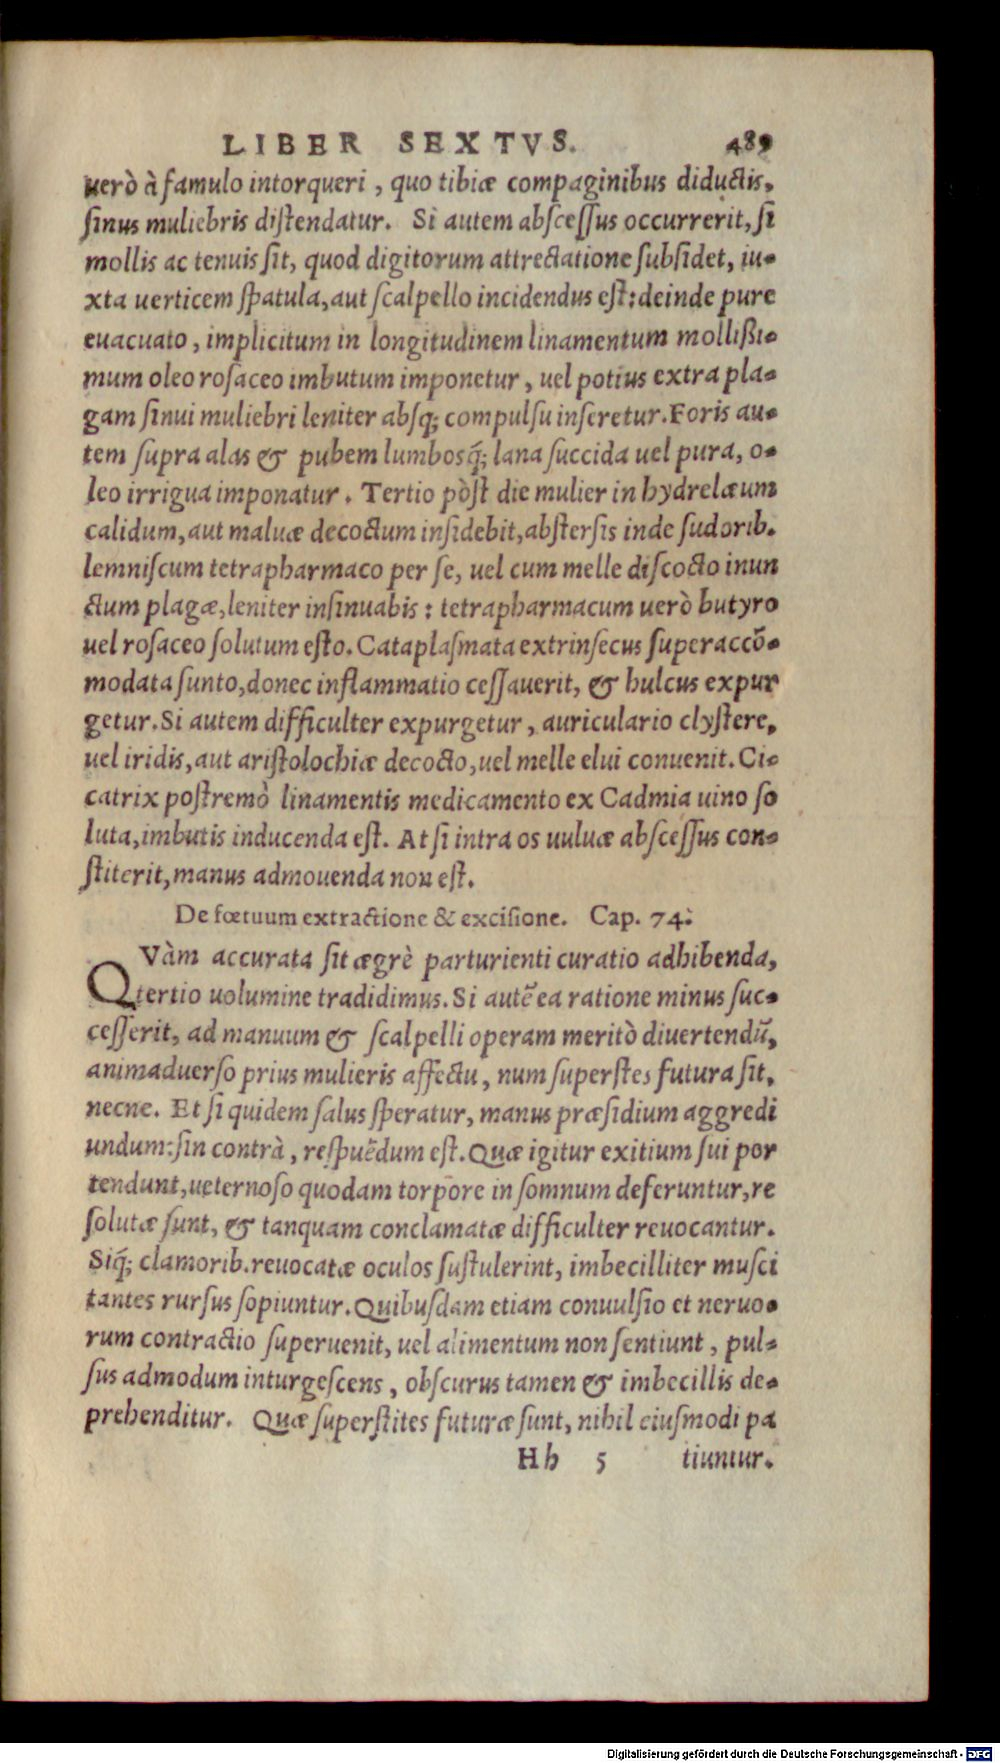 LIBER SEXTVS. 489
uerò à famulo intorqueri, quo tibiæ compaginibus diductis,
ſinus muliebris diſtendatur. Si autem abſceſſus occurrerit, ſi
mollis ac tenuis ſit, quod digitorum attrectatione ſubſidet, iu-
xta uerticem ſpatula, aut ſcalpello incidendus eſt: deinde pure
euacuato, implicitum in longitudinem linamentum mollißi-
mum oleo roſaceo imbutum imponetur, uel potius extra pla-
gam ſinui muliebri leniter abſq; compulſu inſeretur. Foris au-
tem ſupra alas & pubem lumbosq́; lana ſuccida uel pura, o-
leo irrigua imponatur. Tertio pòſt die mulier in hydrelæum
calidum, aut maluæ decoctum inſidebit, abſterſis inde ſudorib.
lemniſcum tetrapharmaco per ſe, uel cum melle diſcocto inun
ctum plagæ, leniter inſinuabis: tetrapharmacum uerò butyro
uel roſaceo ſolutum eſto. Cataplaſmata extrinſecus ſuperaccõ-
modata ſunto, donec inflammatio ceſſauerit, & hulcus expur
getur. Si autem difficulter expurgetur, auriculario clyſtere,
uel iridis, aut ariſtolochiæ decocto, uel melle elui conuenit. Ci-
catrix poſtremò linamentis medicamento ex Cadmia uino ſo
luta, imbutis inducenda eſt. At ſi intra os uuluæ abſceſſus con-
ſtiterit, manus admouenda non eſt.
De fœtuum extractione & exciſione. Cap. 74.
QVàm accurata ſit ægrè parturienti curatio adhibenda,
tertio uolumine tradidimus. Si autẽ ea ratione minus ſuc-
ceſſerit, ad manuum & ſcalpelli operam meritò diuertendũ,
animaduerſo prius mulieris affectu, num ſuperſtes futura ſit,
necne. Et ſi quidem ſalus ſperatur, manus præſidium aggredi
undum: ſin contrà, reſpuẽdum eſt. Quæ igitur exitium ſui por
tendunt, ueternoſo quodam torpore in ſomnum deferuntur, re
ſolutæ ſunt, & tanquam conclamatæ difficulter reuocantur.
Siq́; clamorib. reuocatæ oculos ſuſtulerint, imbecilliter muſci
tantes rurſus ſopiuntur. Quibuſdam etiam conuulſio et neruo-
rum contractio ſuperuenit, uel alimentum non ſentiunt, pul-
ſus admodum inturgeſcens, obſcurus tamen & imbecillis de-
prehenditur. Quæ ſuperſtites futuræ ſunt, nihil eiuſmodi pa
Hh 5 tiuntur.
Digitalisierung gefördert durch die Deutsche Forschungsgemeinschaft - DFG